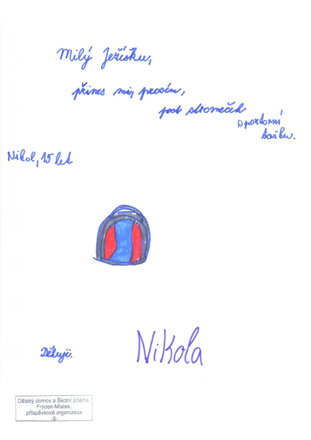 Milý Ježíšku,
přines mi, prosím,
pod stromeček
sportovní
tašku.
Nikol, 15 let
Děkuji.
Nikola
Dětský domov a Školní jídelna,
Frýdek-Místek,
příspěvková organizace
-5-